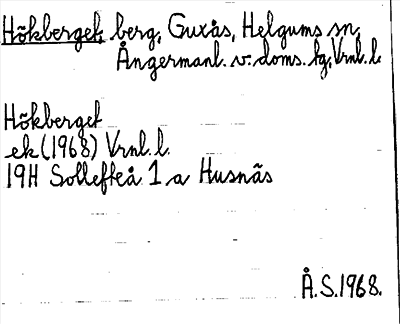 Hökberget, berg, Guxås, Helgums sn,
Ångermanl. v. doms. hg, Vrnl. l.
Hökberget
ek (1968) Vrnl. l.
19H Sollefteå 1 a Husnäs
Å.S. 1968.